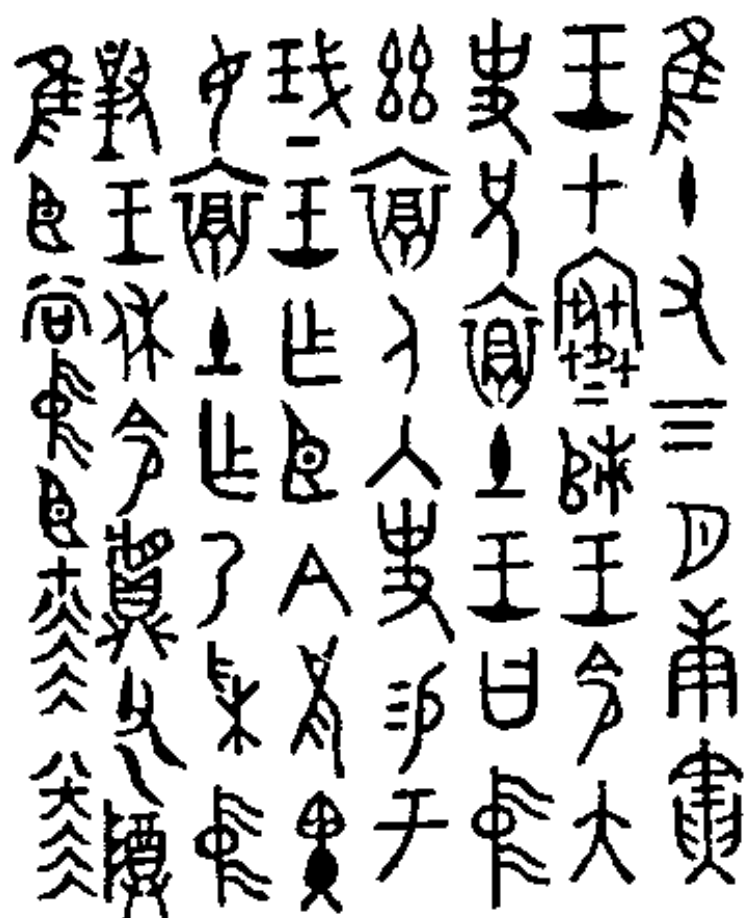 隹十又三月庚寅
王才寒𠂤王令大
史兄褱土王曰中
茲褱人入史易于
珷王乍臣今兄畀
女褱土乍乃采中
對王休令䵼父乙尊
隹臣尚中臣七八六六六六八七六六六六